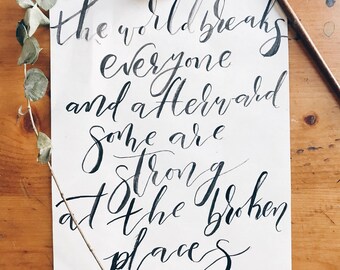 the world breaks
everyone
and afterward
some are
strong
at the broken
places